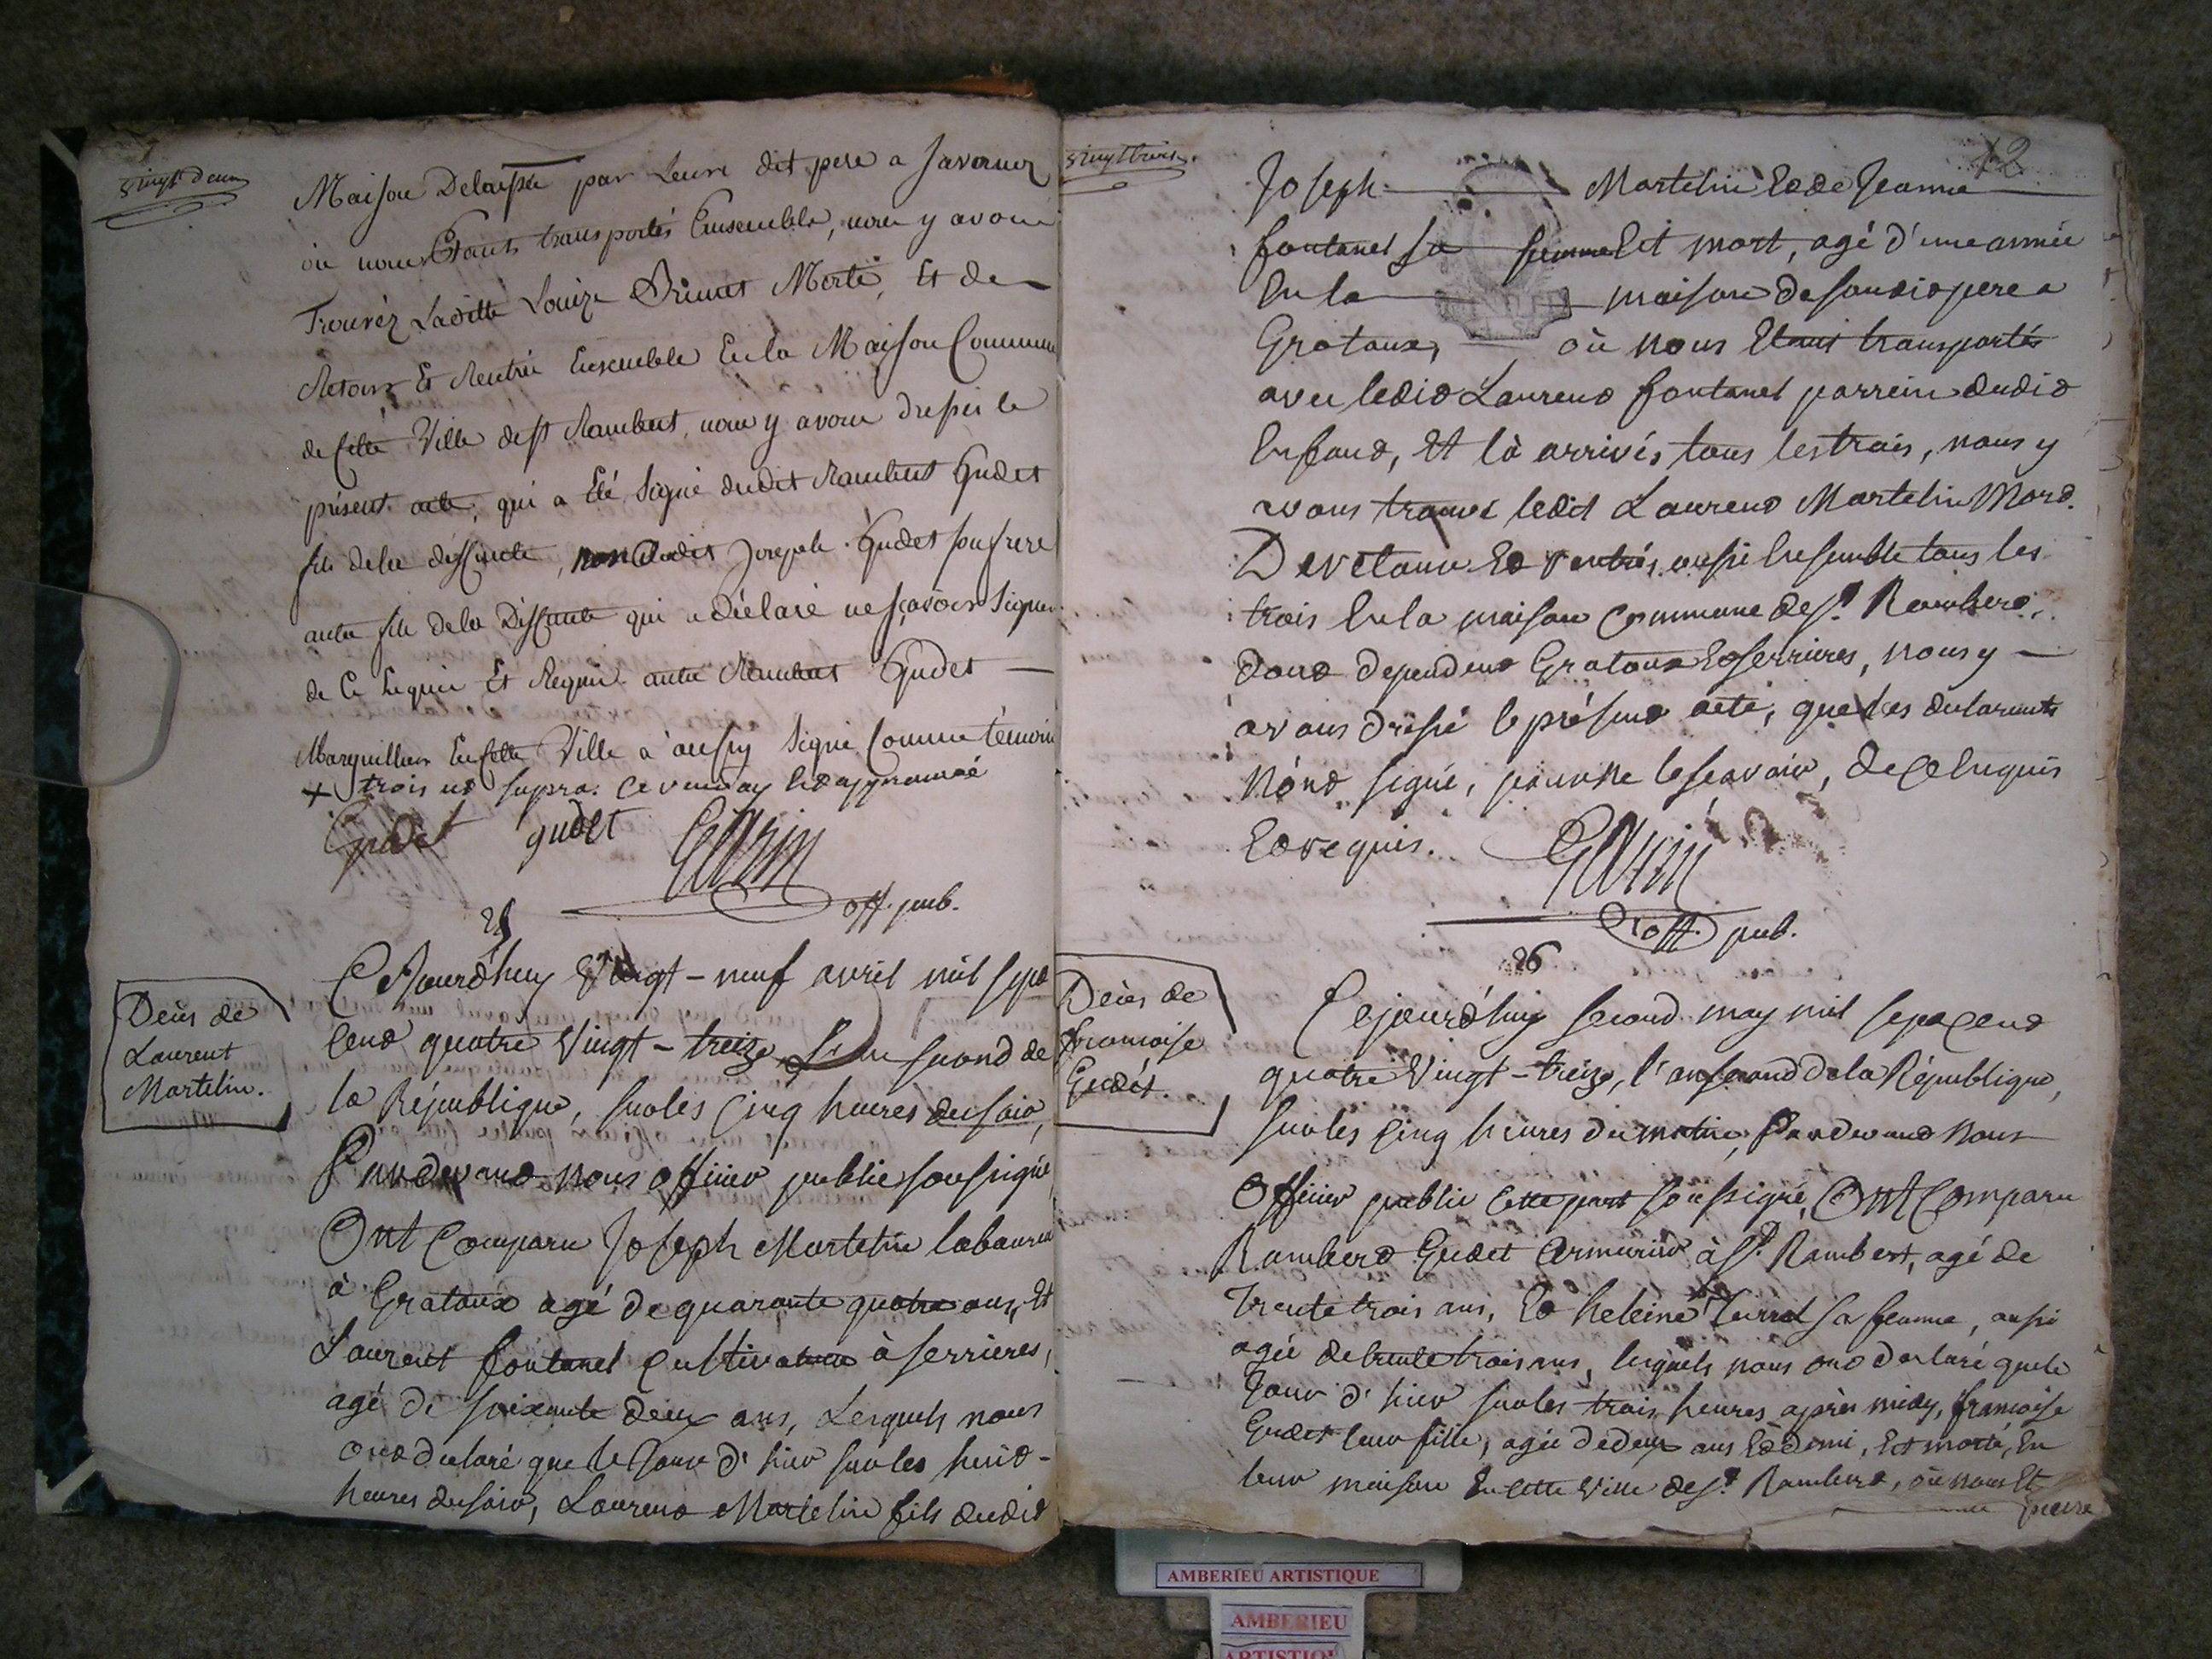 vingt deux
Maison Delaissée par Leur dit pere a Javornoz
où nous Etants transportés Ensemble, nous y avons
Trouvéz Laditte Louize Morte, Et de
Retour Et Rentrés Ensemble En la Maison Commune
de Cette Ville de st Rambert, nous y avons dressés le
présent acte, qui a Eté Signé dudit Rambert Gudet
fils de la deffunte, non dudit Joseph Gudet son frere
autre fils de la Deffunte qui a Déclaré ne sçavoir Signer
de Ce Enquis Et Requis autre Rambert Gudet
Marguillier En Cette Ville a aussy Signé Comme témoin
+ trois ut supra. ce renvoy Est approuvé
Gudet gudet
off. pub.
25
Décès de
Laurent
Martelin.
Cejourd'huy Vingt-neuf avril mil sept
Cent quatre Vingt-treize, L'an second de
la République, sur les Cinq heures du soir,
Pardevant nous officier public soussigné
Ont Comparu Joseph Martelin laboureur
à Grataux agé de quarante quatre ans, Et
Laurent fontanel Cultivateur à serrieres,
agé de soixante deux ans, Lesquels nous
ont declaré que le Jour d'hier sur les huit-
heures du soir, Laurent Martelin fils dudit
vingt trois.
12
Joseph Martelin Et de Jeanne
fontanel sa femme Est mort, agé d'une année
En la maison de son dit pere a
Grataux, où nous Etant transportés
avec ledit Laurent fontanel parrein dudit
Enfant, Et là arrivés tous les trois, nous y
avons trouvé ledit Laurent Martelin Mort.
De retour Et rentrés aussi Ensemble tous les
trois En la maison Commune de st. Rambert,
dont dependent Grataux Et serrieres, nous y
avons dressé le présent acte, que les declarants
N'ont signé, pour ne le scavoir, de Ce Enquis
Et requis.
off. pub.
26
Décès de
francoise
Gudet.
Cejourd'huy second may mil sept Cent
quatre Vingt-treize, l'an second de la République,
sur les Cinq heures du matin, Pardevant nous
Officier public soussigné, Ont Comparu
Rambert Gudet Armurier à st. Rambert, agé de
Trente trois ans, Et heleine sa femme, aussi
agée de trente trois ans, lesquels nous ont declaré que le
Jour d'hier sur les trois heures après midy, francoise
Gudet leur fille, agée de deux ans Et demi, Est morte, En
leur maison En Cette Ville de st. Rambert, où nous Et